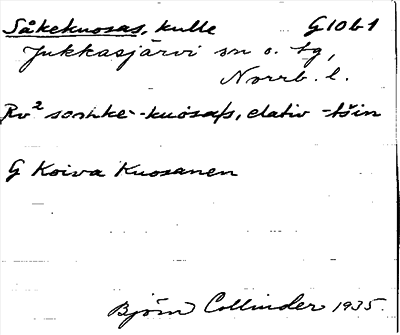 Såkekuosas, kulle G10b1
Jukkasjärvi sn o. tg,
Norrb. l.
Rv² kuosa/s, elativ -tšin
G Koiva Kuosanen
Björn Collinder 1935.